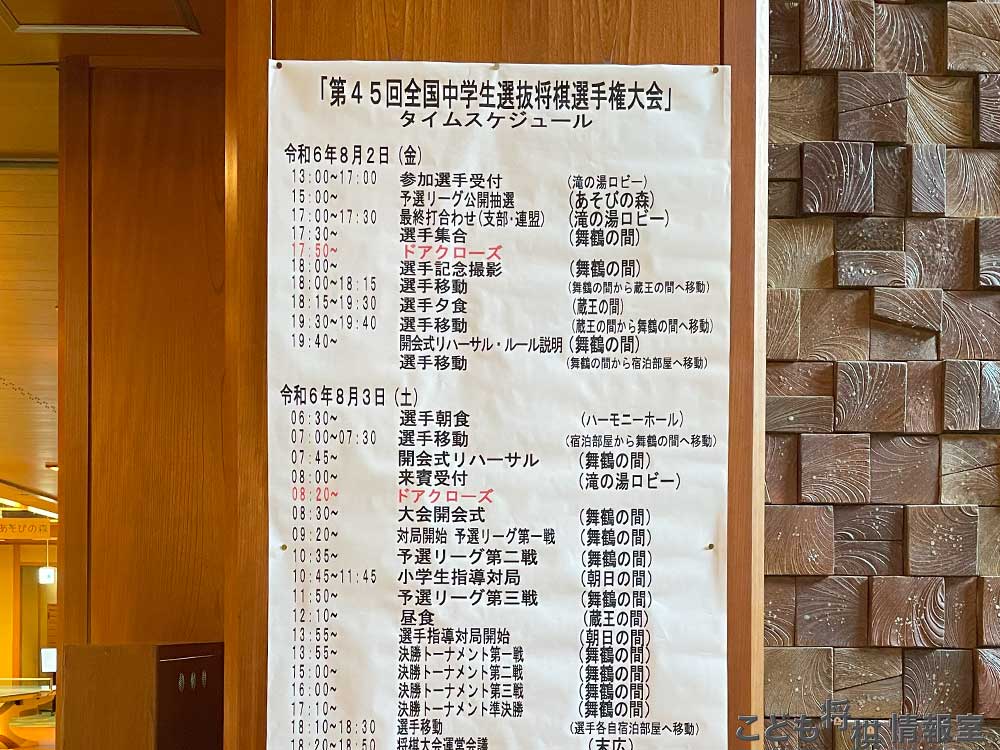 「第45回全国中学生選抜将棋選手権大会」
タイムスケジュール
令和6年8月2日(金)
13:00~17:00 参加選手受付 (滝の湯ロビー)
15:00~ 予選リーグ公開抽選 (あそびの森)
17:00~17:30 最終打合わせ(支部・連盟) (滝の湯ロビー)
17:30~ 選手集合 (舞鶴の間)
17:50~ ドアクローズ
18:00~ 選手記念撮影 (舞鶴の間)
18:00~18:15 選手移動 (舞鶴の間から蔵王の間へ移動)
18:15~19:30 選手夕食 (蔵王の間)
19:30~19:40 選手移動 (蔵王の間から舞鶴の間へ移動)
19:40~ 開会式リハーサル・ルール説明 (舞鶴の間)
選手移動 (舞鶴の間から宿泊部屋へ移動)
令和6年8月3日(土)
06:30~ 選手朝食 (ハーモニーホール)
07:00~07:30 選手移動 (宿泊部屋から舞鶴の間へ移動)
07:45~ 開会式リハーサル (舞鶴の間)
08:00~ 来賓受付 (滝の湯ロビー)
08:20~ ドアクローズ
08:30~ 大会開会式 (舞鶴の間)
09:20~ 対局開始 予選リーグ第一戦 (舞鶴の間)
10:35~ 予選リーグ第二戦 (舞鶴の間)
10:45~11:45 小学生指導対局 (朝日の間)
11:50~ 予選リーグ第三戦 (舞鶴の間)
12:10~ 昼食 (蔵王の間)
13:55~ 選手指導対局開始 (朝日の間)
13:55~ 決勝トーナメント第一戦 (舞鶴の間)
15:00~ 決勝トーナメント第二戦 (舞鶴の間)
16:00~ 決勝トーナメント第三戦 (舞鶴の間)
17:10~ 決勝トーナメント準決勝 (舞鶴の間)
18:10~18:30 選手移動 (選手各自宿泊部屋へ移動)
18:20~18:50 将棋大会運営会議 (末広)
あそびの森
こども将棋情報室